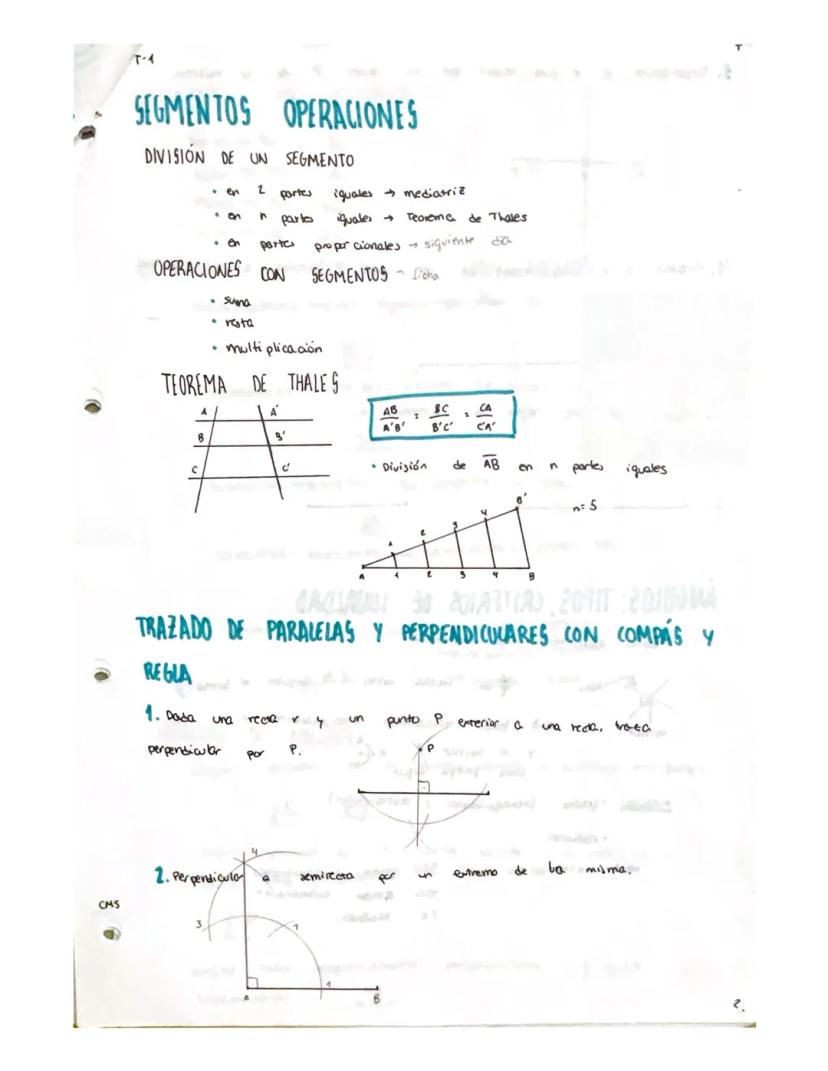 T-1
T
SEGMENTOS OPERACIONES
DIVISIÓN DE UN SEGMENTO
• en 2 partes iguales → mediatriz
• en n partes iguales → Teorema de Thales
• en partes proporcionales → siguiente día
OPERACIONES CON SEGMENTOS → ficha
• suma
• resta
• multiplicación
TEOREMA DE THALES
A A'
B B'
C C'
AB/A'B' = BC/B'C' = CA/C'A'
• División de AB en n partes iguales
n=5
1 2 3 4 B'
A 1 2 3 4 B
TRAZADO DE PARALELAS Y PERPENDICULARES CON COMPÁS Y
REGLA
1. Dada una recta r y un punto P exterior a una recta, traza
perpendicular por P.
P
2. Perpendicular a semirecta por un extremo de la misma.
4
CMS
3 2
1
A B
2.